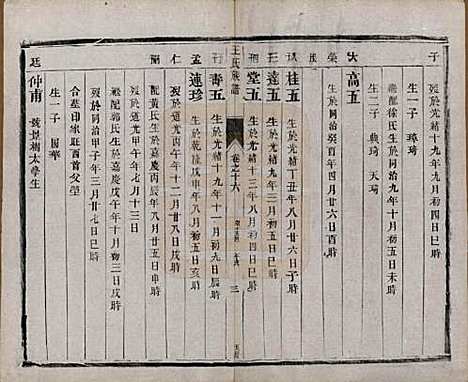 子
歿於光緒十九年九月初四日巳時
生一子 瑋琦
大 高五
繼配徐氏生於同治九年十月初五日未時
生二子 典琦 天琦
榮
生於同治癸酉年四月廿六日酉時
桂五
生於光緒丁丑年八月廿六日子時
達五
生於光緒九年三月初五日巳時
堂五
生於光緒十三年八月初四日巳時
王氏族譜
卷之十六
三
壽五
生於光緒十九年十一月初九日戌時
孟 連珍
生於乾隆戊申年八月初五日亥時
仁
歿於道光丙午年十二月廿八日戌時
配黃氏生於嘉慶丙辰年八月廿五日申時
歿於道光廿四年十月廿七日巳時
廷 仲甫
號景湖太學生
生於嘉慶戊午年十月初三日戌時
歿於同治甲子年三月廿七日巳時
合墓印家旺酉首父塋
生一子 國華